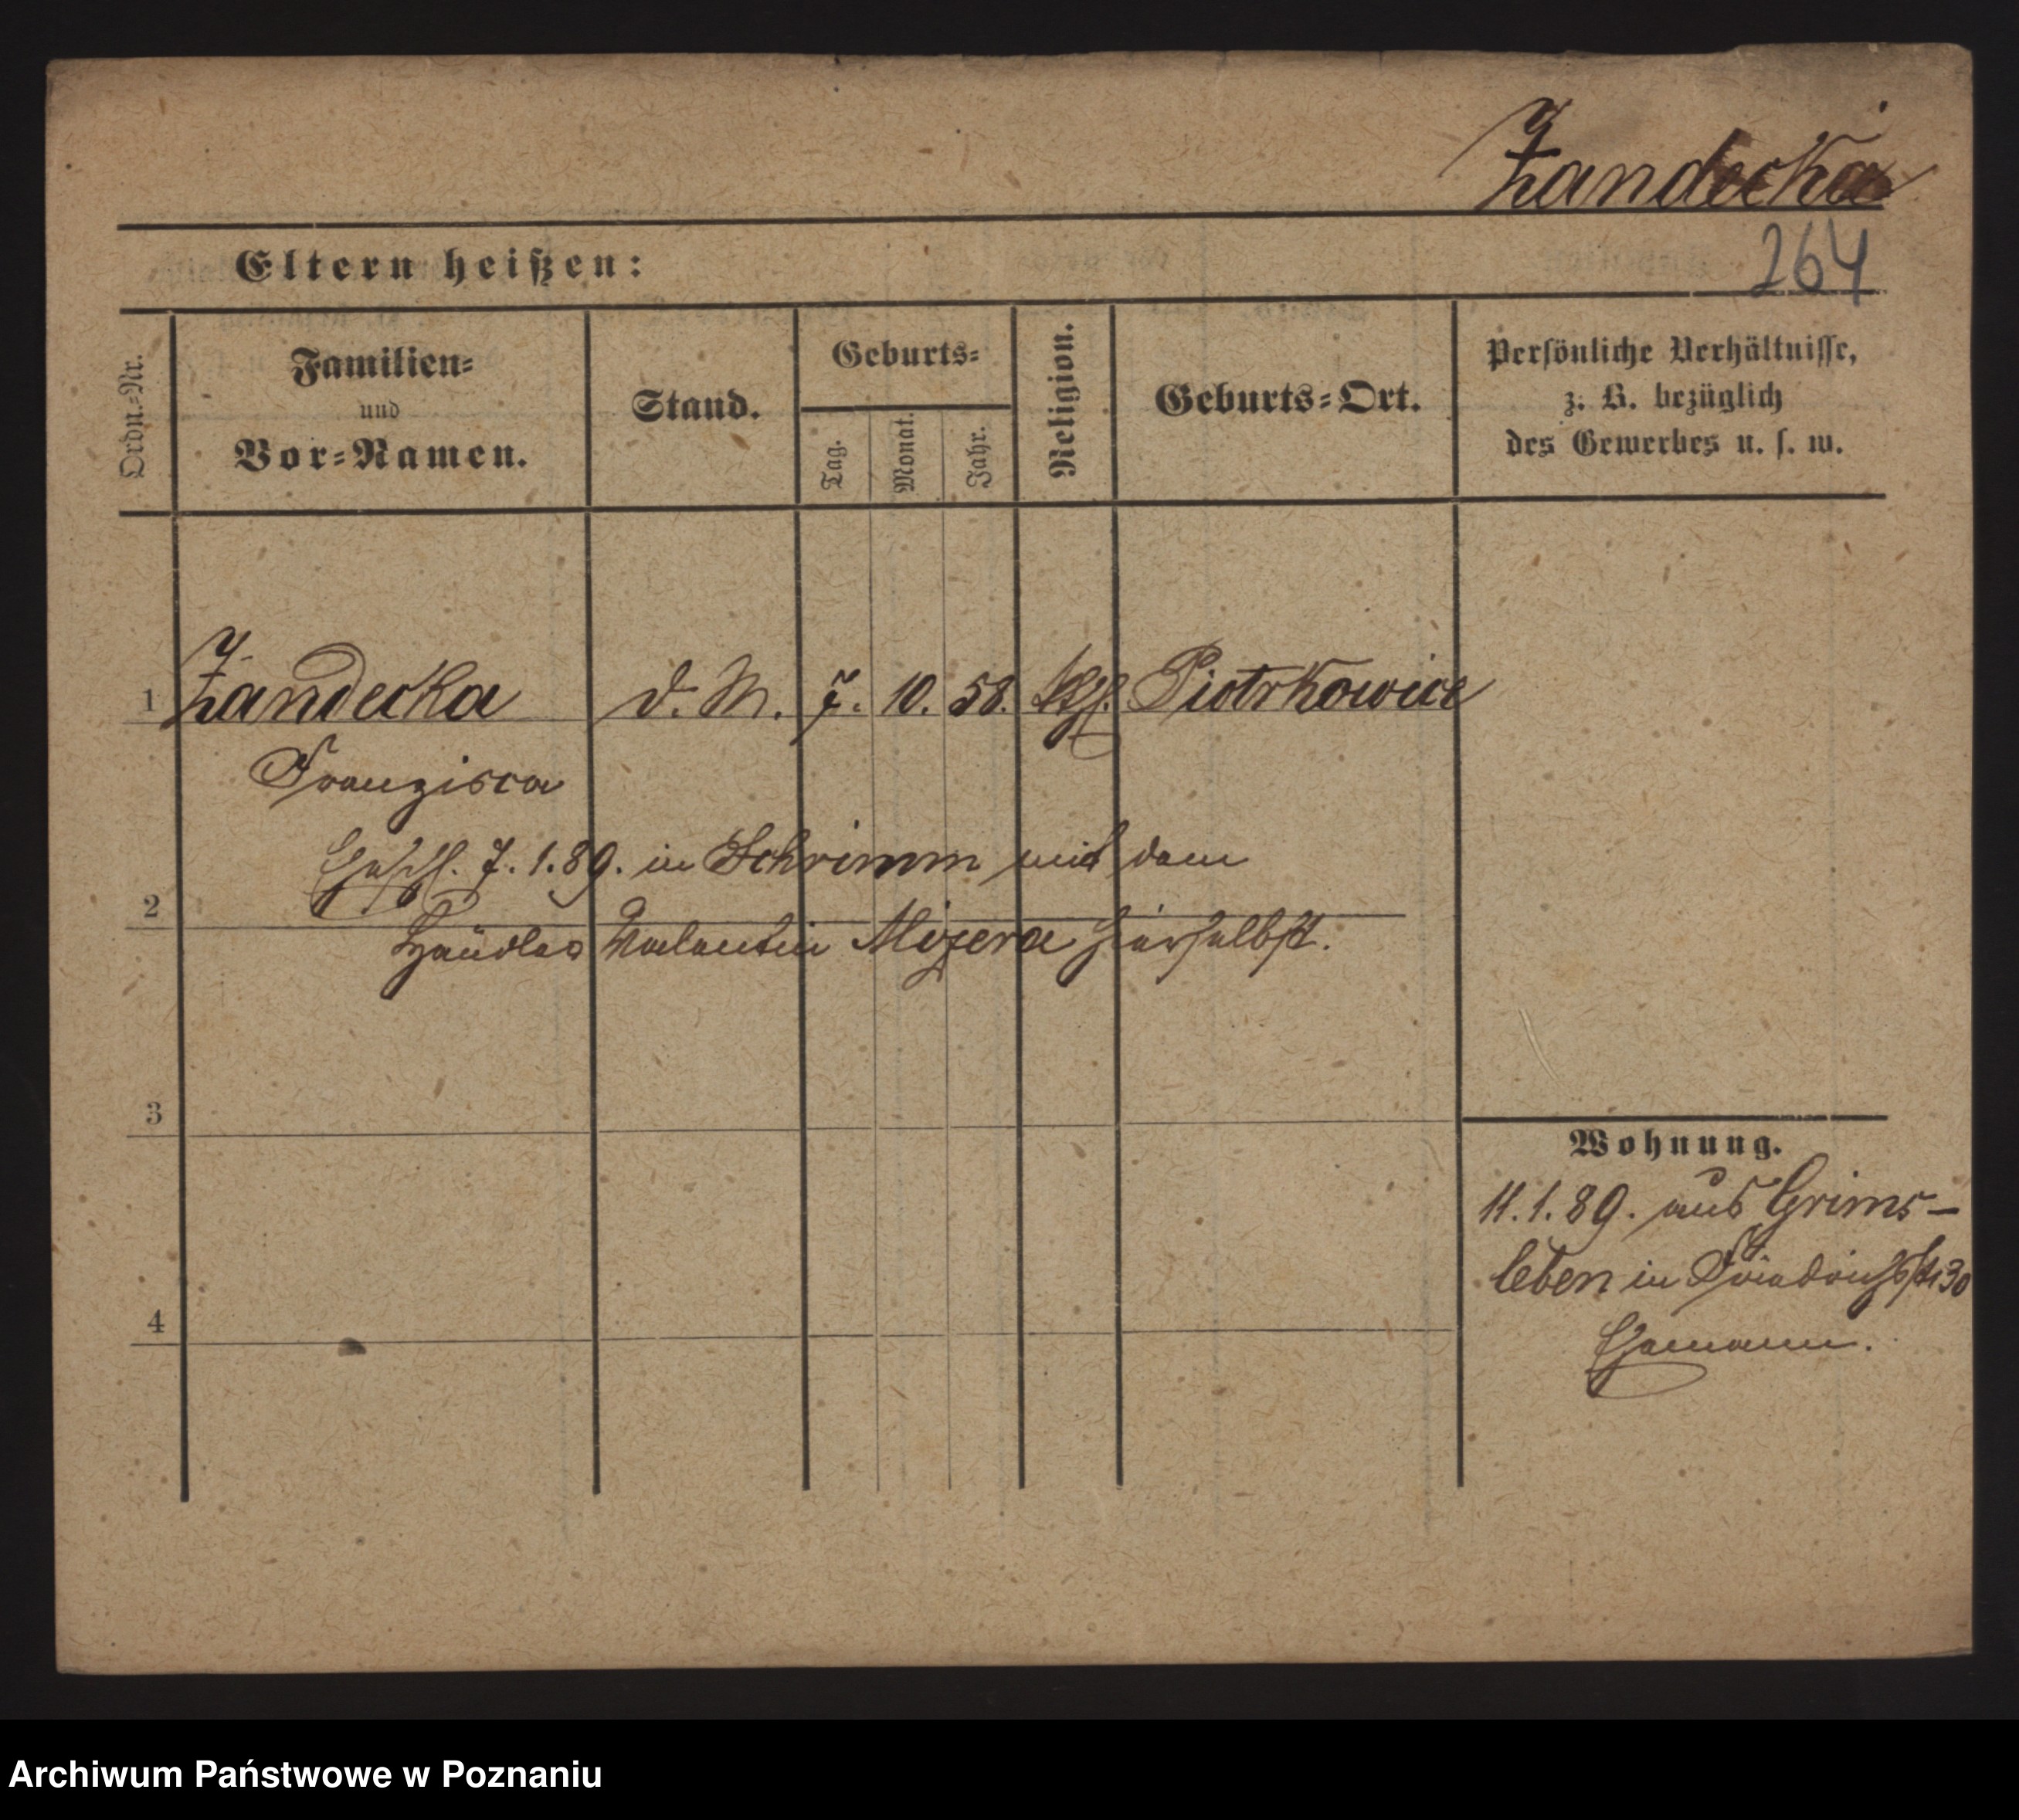 Zandecka
264
Eltern heißen:
Ordn.-Nr.
Familien-
und
Vor-Namen.
Stand.
Geburts-
Tag.
Monat.
Jahr.
Religion.
Geburts-Ort.
Persönliche Verhältnisse,
z. B. bezüglich
des Gewerbes u. s. w.
1 Zandecka d. M. 7. 10. 58. kth. Piotrkowice
Franzisca
Ehschl. 7. 1. 89. in Schrimm mit dem
2
Händler Valentin Mizera hierselbst.
3
Wohnung.
11. 1. 89. aus Grims-
leben in Friedrichstr 30
4
Ehemann.
Archiwum Państwowe w Poznaniu